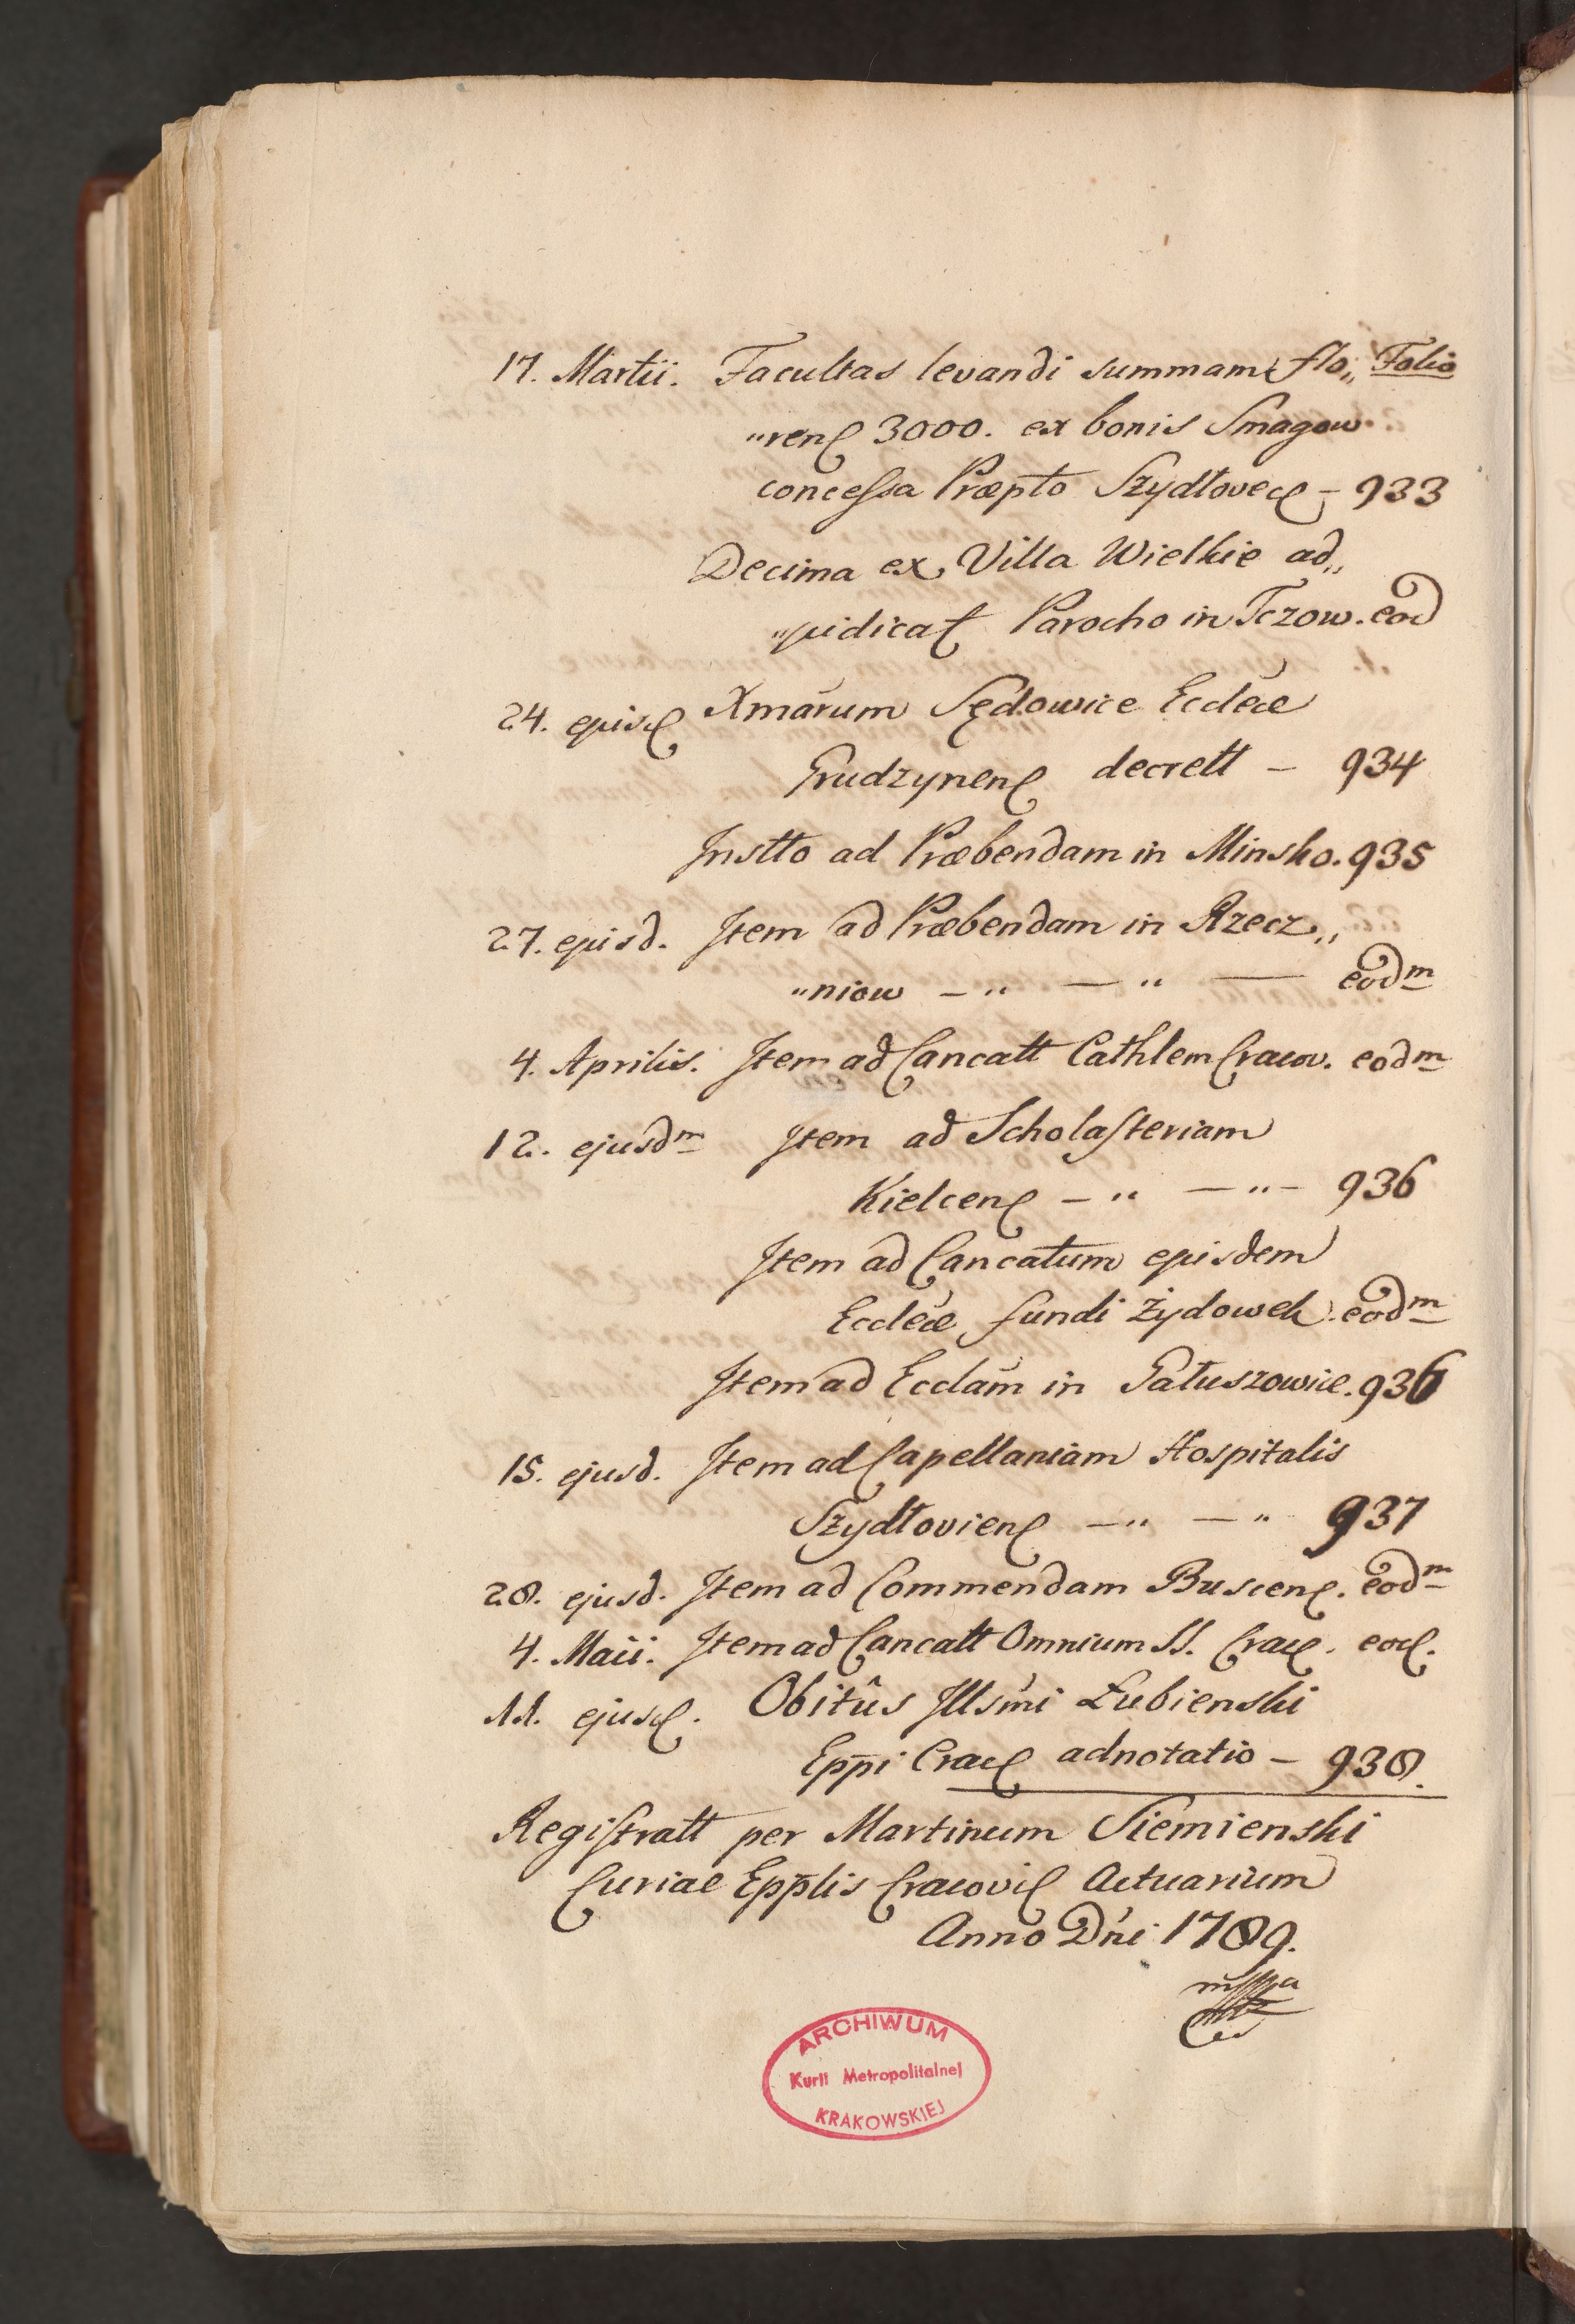 17. Martii. Facultas levandi summam flo„ Folio
„ren 3000. ex bonis Smagow
concessa Præpto Szydłovec – 933
Decima ex Villa Wielkie ad„
„judicat Parocho in Tczow. eod
24. ejusd Xmarum Sędowice Eccleæ
Grudzynen decrett – 934
Instto ad Præbendam in Minsko. 935
27. ejusd. Item ad Præbendam in Rzecz„
„niow – „ – „ – eodm
4. Aprilis. Item ad Cancatt Cathlem Cracov. eodm
12. ejusdm Item ad Scholasteriam
Kielcen – „ – „ – 936
Item ad Cancatum ejusdem
Eccleæ fundi Żydowek. eodm
Item ad Ecclam in Gałuszowice. 936
15. ejusd. Item ad Capellaniam Hospitalis
Szydłovien – „ – „ 937
28. ejusd. Item ad Commendam Buscen. eodm
4. Maii. Item ad Cancatt Omnium SS. Crac. eod.
11. ejusd. Obitûs Illsmi Łubienski
Eppi Crac adnotatio – 938.
Registratt per Martinum Siemienski
Curiae Epplis Cracovi Actuarium
Anno Dni 1789.
mppa
ARCHIWUM
Kurii Metropolitalnej
KRAKOWSKIEJ